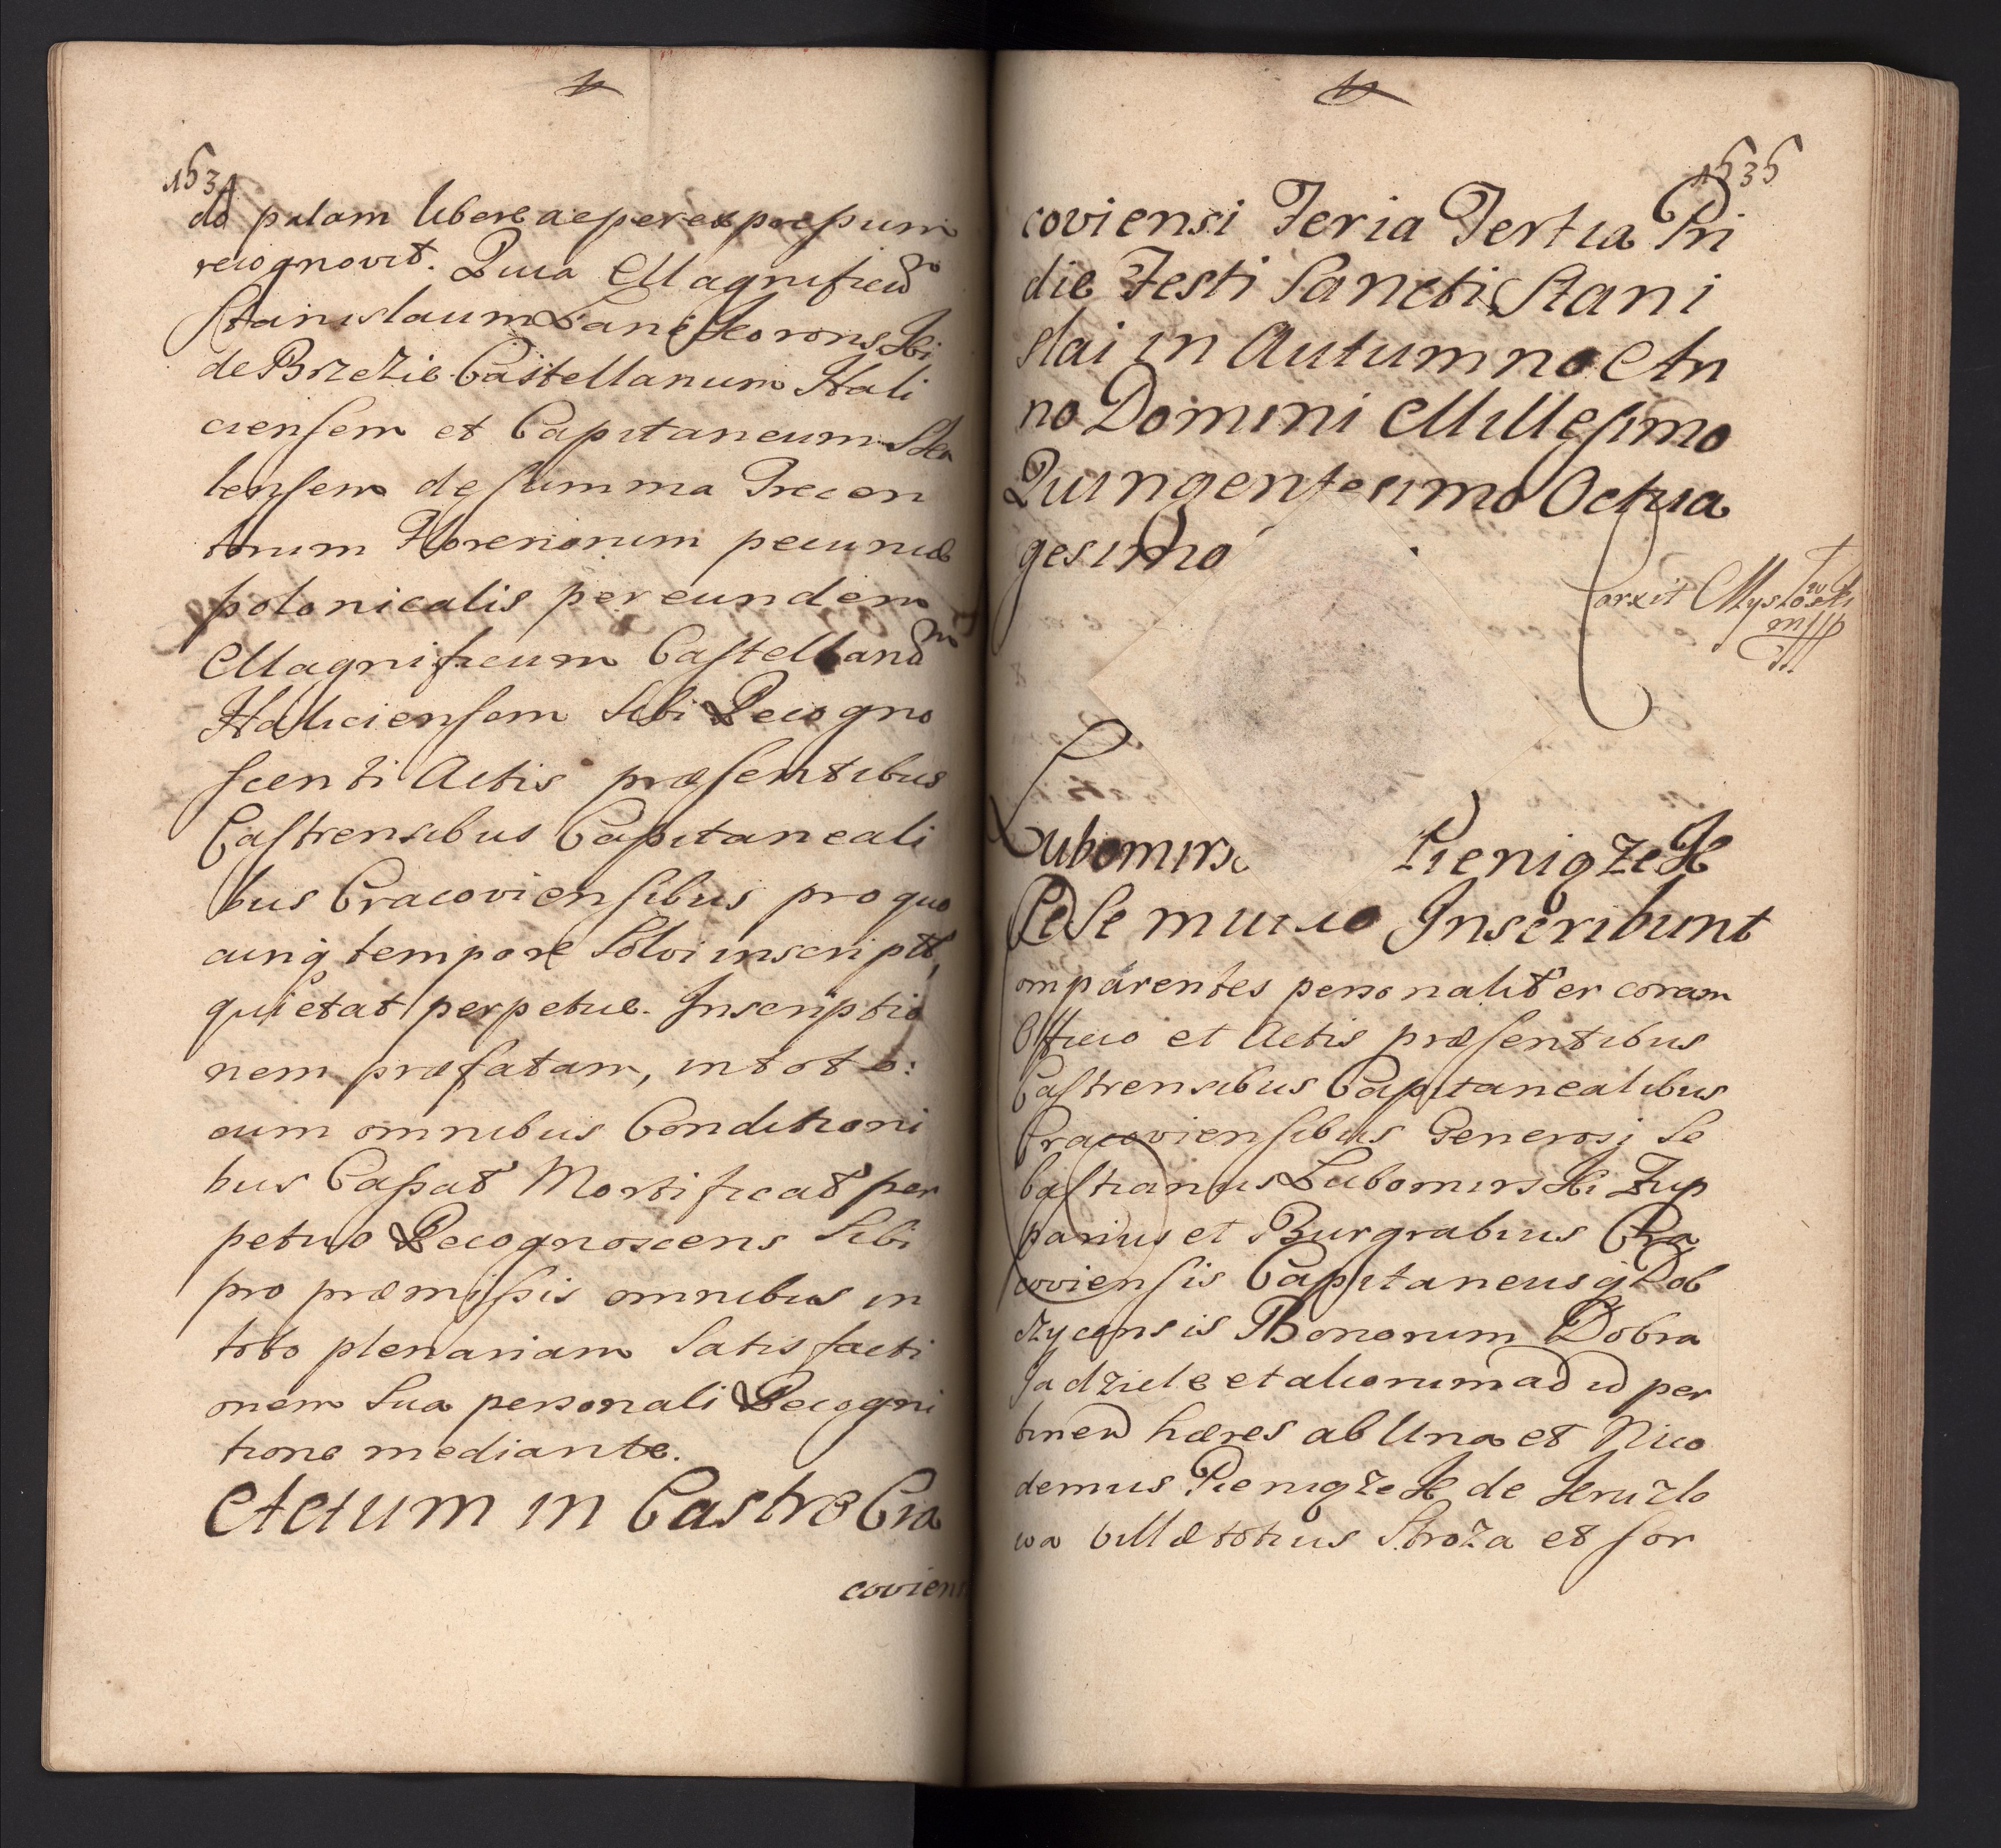 1534
do palam libere ac per expressum
recognovit. Quia Magnificum
Stanislaum Lanckoronski
de Brzezie Castellanum Hali
ciensem et Capitaneum Ska
lensem de summa Trecen
torum Florenorum pecuniæ
polonicalis per eundem
Magnificum Castellanum
Haliciensem sibi Recogno
scenti Actis præsentibus
Castrensibus Capitaneali
bus Cracoviensibus pro quo
cunq tempore solvi inscript
quietat perpetue. Inscriptio
nem præfatam, in toto:
cum omnibus Conditioni
bus Cassat Mortificat per
petuo Recognoscens Sibi
pro præmissis omnibus in
toto plenariam satisfacti
onem Sua personali Recogni
tione mediante.
Actum in Castro Cra
coviens
1535
coviensi Feria Tertia Pri
die Festi Sancti Stani
slai in Autumno An
no Domini Millesimo
Quingentesimo Octua
gesimo
Corxit Mysłowski
mpp
Lubomirs Pieniązek
Se mutuo Inscribunt
omparentes personaliter coram
Officio et Actis præsentibus
Castrensibus Capitanealibus
Cracoviensibus Generosi Se
bastianus Lubomirski Zup
parius et Burgrabius Cra
coviensis Capitaneusq Dob
czycensis Bonorum Dobra
Jadziele et aliorum ad id per
tinen hæres ab Una et Nico
demus Pieniązek de Kruzlo
wa villæ totius Stroza et sor